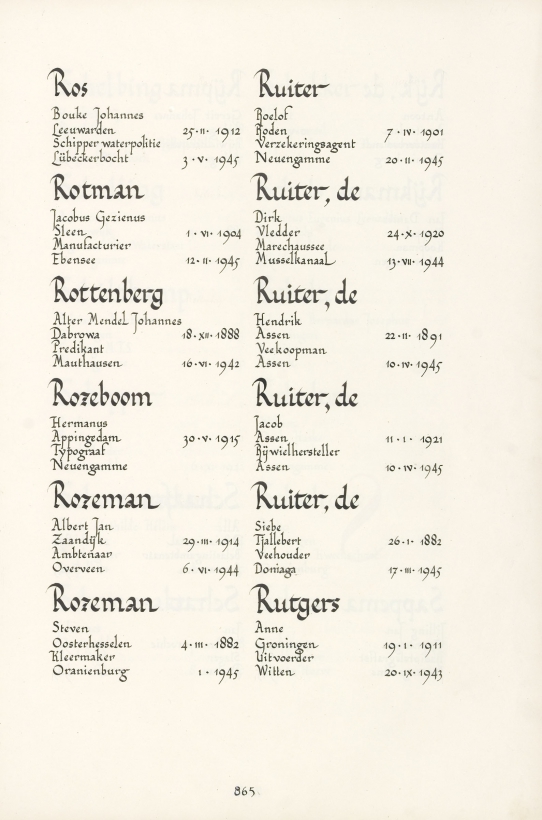 Ros
Bouke Johannes
Leeuwarden 25·II·1912
Schipper waterpolitie
Lübeckerbocht 3·V·1945
Rotman
Jacobus Gezienus
Sleen 1·VI·1904
Manufacturier
Ebensee 12·II·1945
Rottenberg
Alter Mendel Johannes
Dabrowa 18·XII·1888
Predikant
Mauthausen 16·VI·1942
Rozeboom
Hermanus
Appingedam 30·V·1915
Typograaf
Neuengamme
Rozeman
Albert Jan
Zaandijk 29·III·1914
Ambtenaar
Overveen 6·VI·1944
Rozeman
Steven
Oosterhesselen 4·III·1882
Kleermaker
Oranienburg 1·1945
Ruiter
Roelof
Roden 7·IV·1901
Verzekeringsagent
Neuengamme 20·II·1945
Ruiter, de
Dirk
Vledder 24·X·1920
Marechaussee
Musselkanaal 13·VII·1944
Ruiter, de
Hendrik
Assen 22·II·1891
Veekoopman
Assen 10·IV·1945
Ruiter, de
Jacob
Assen 11·I·1921
Rijwielhersteller
Assen 10·IV·1945
Ruiter, de
Siebe
Tjallebert 26·I·1882
Veehouder
Doniaga 17·III·1945
Rutgers
Anne
Groningen 19·I·1911
Uitvoerder
Witten 20·IX·1943
865